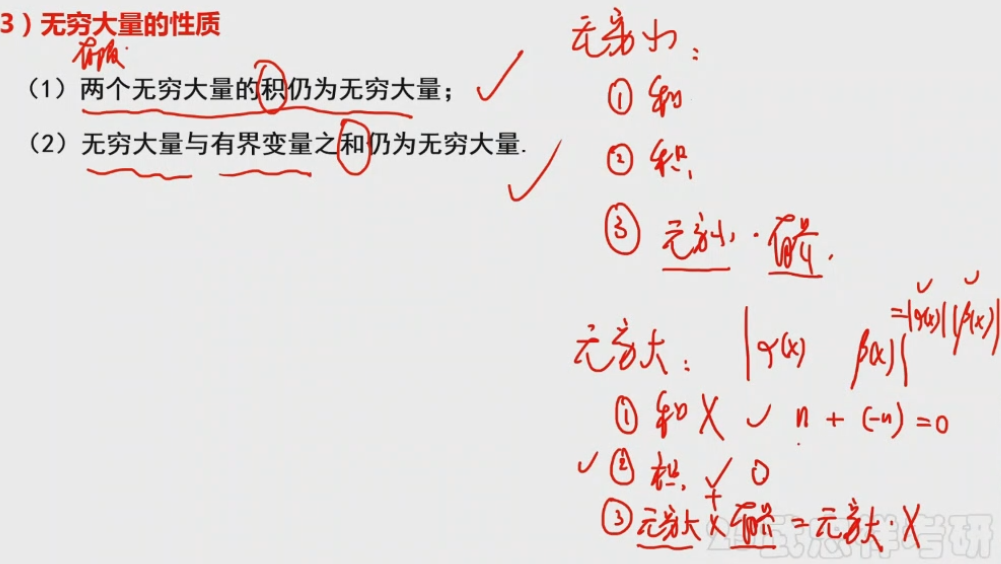 3）无穷大量的性质
有限
（1）两个无穷大量的积仍为无穷大量；
（2）无穷大量与有界变量之和仍为无穷大量.
无穷小：
① 和
② 积
③ 无穷小 · 有界.
无穷大： |α(x) β(x)| =|α(x)||β(x)|
① 和 X ✓ n + (-n) = 0
✓ ② 积. ✓ 0
+
③ 无穷大 × 有界 = 无穷大. X
武忠祥考研